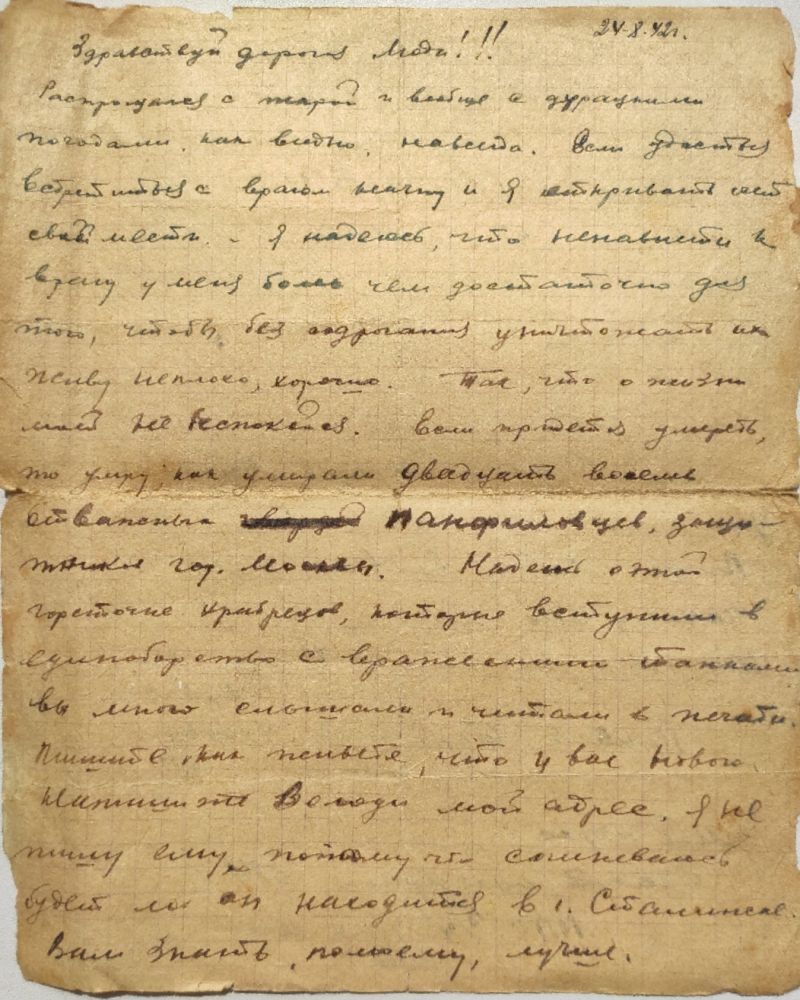 24.8.42г.
Здравствуй дорогие люди!!!
Распрощался с жарой и вообще с дурацкими
погодами, как видно, навсегда. Если удасться
встретиться с врагом начну и я открывать счет
своей мести. Я надеюсь, что ненависти к
врагу у меня более чем достаточно для
того, чтобы без содрогания уничтожать их
Живу неплохо, хорошо. Так, что о жизни
моей не беспокойтесь. Если придется умереть,
то умру, как умирали двадцать восемь
отважных панфиловцев, защи-
тников гор. Москвы. Надеюсь о этой
горсточке храбрецов, которые вступили в
единоборство с вражескими танками
вы много слышали и читали в печати.
Пишите, как живете, что у вас нового.
Напишите Володи мой адрес. Я не
пишу ему, потому что сомневаюсь
будет ли он находится в г. Сталинске.
Вам знать, помоему, лучше.